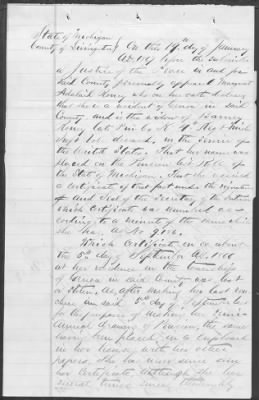 State of Michigan
County of Livingston } On this 19th day of January
A.D. 1867 before the subscriber
a Justice of the Peace in and for
said County personally appeared Margaret
who on her oath declares
that she is a resident of Genoa in said
County and is the widow of Barney
late of Co. K. Regt Mich
Vols. deceased, in the service of
the United States. That her name was
placed on the Pension list Roll of
the State of Michigan. That she received
a certificate of that fact under the signature
and Seal of the Secretary of the Interior
which Certificate was numbered ac-
cording to a memory of the same which
she has, as No
Which Certificate on or about
the 5th day of September A.D. 1866
at her residence in the Township
of Genoa in said County was lost
or stolen
her in said 5th day of September
for the purpose of making her Semi-
Annual drawing of Pension, the same
having been placed in a cupboard
in her house with her other
papers, she has never since seen
her Certificate although she has
several times since thoroughly